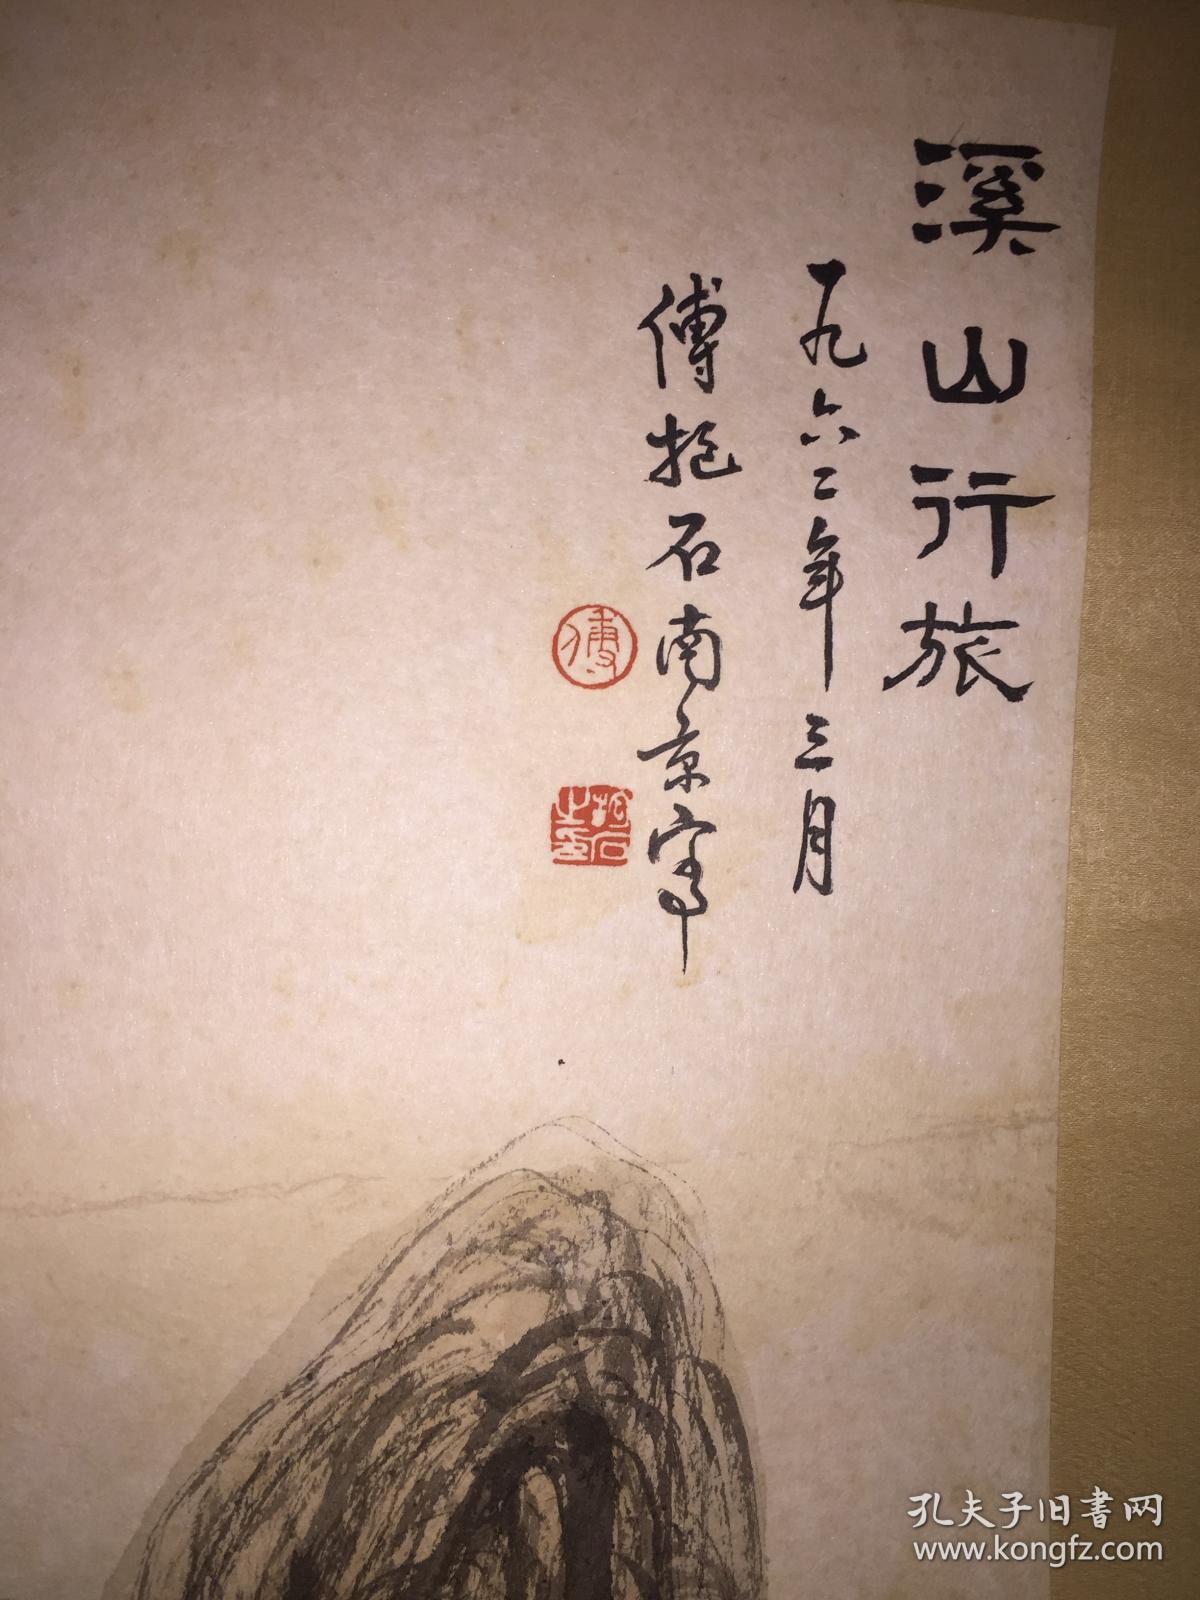 溪山行旅
一九六二年三月
傅抱石南京写
傅
抱石之印
孔夫子旧书网
www.kongfz.com